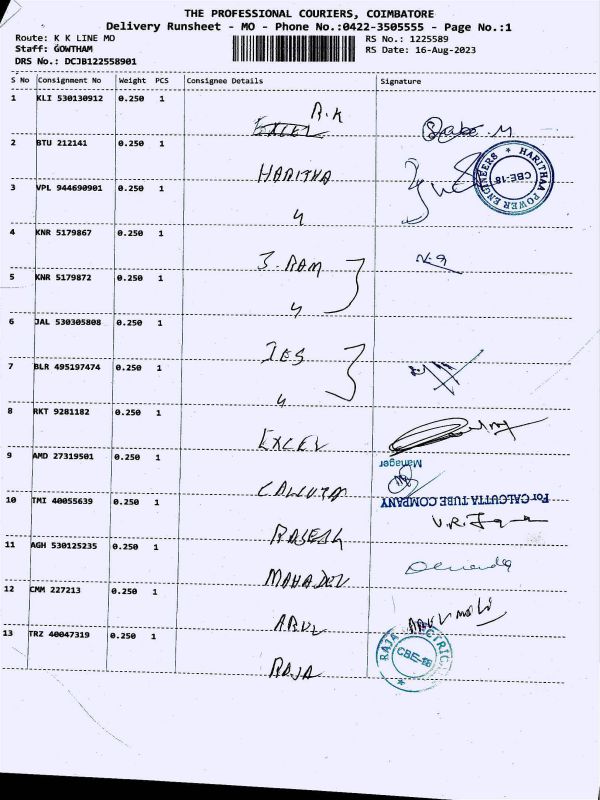 THE PROFESSIONAL COURIERS, COIMBATORE
Delivery Runsheet - MO - Phone No.:0422-3505555 - Page No.:1
Route: K K LINE MO
RS No.: 1225589
Staff: GOWTHAM
RS Date: 16-Aug-2023
DRS No.: DCJB122558901
S No Consignment No Weight PCS Consignee Details Signature
1 KLI 530130912 0.250 1 R.K
2 BTU 212141 0.250 1 HARITHA
3 VPL 944690901 0.250 1 4
HARITHAA POWER ENGINEERS * CBE-18
4 KNR 5179867 0.250 1 J. RAM
5 KNR 5179872 0.250 1 4
6 JAL 530305808 0.250 1 JES
7 BLR 495197474 0.250 1 4
8 RKT 9281182 0.250 1 EXCEL
9 AMD 27319501 0.250 1 CALCUTTA
Manager
For CALCUTTA TUBE COMPANY
10 TMI 40055639 0.250 1 RAJESH
11 AGH 530125235 0.250 1 MAHADEV
12 CMM 227213 0.250 1 ARUL
13 TRZ 40047319 0.250 1 RAJA
CBE-18